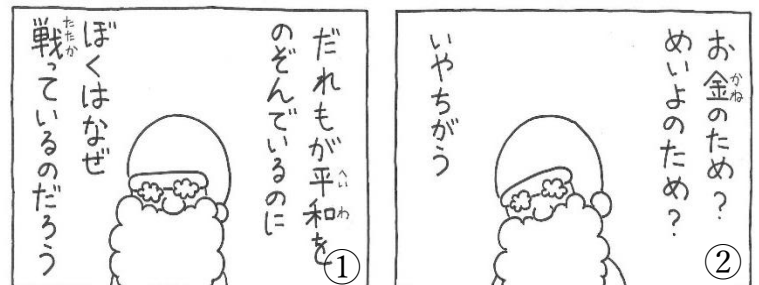 だれもが平和を
のぞんでいるのに
ぼくはなぜ
戦っているのだろう
①
お金のため？
めいよのため？
いやちがう
②